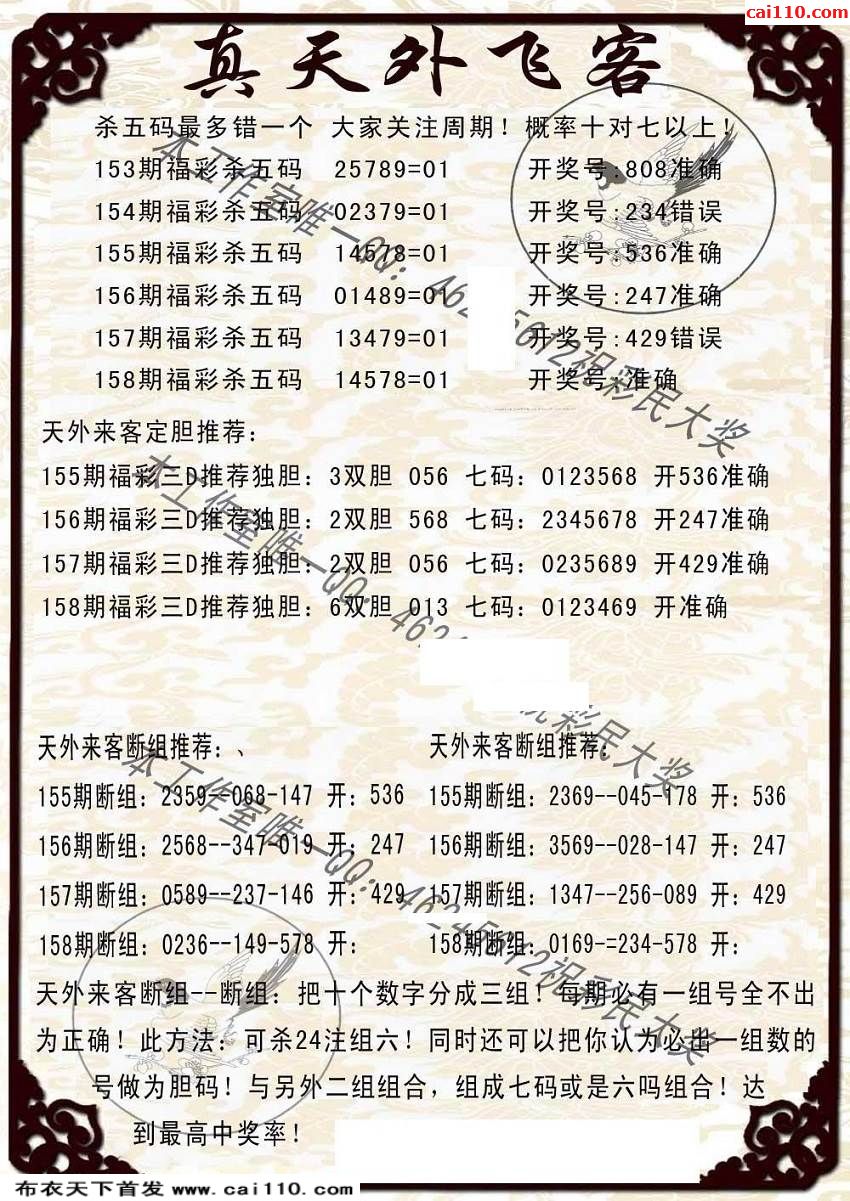 cai110.com
真天外飞客
杀五码最多错一个 大家关注周期！概率十对七以上！
153期福彩杀五码 25789=01 开奖号:808准确
154期福彩杀五码 02379=01 开奖号:234错误
155期福彩杀五码 14578=01 开奖号:536准确
156期福彩杀五码 01489=01 开奖号:247准确
157期福彩杀五码 13479=01 开奖号:429错误
158期福彩杀五码 14578=01 开奖号:准确
天外来客定胆推荐：
155期福彩三D推荐独胆：3双胆 056 七码：0123568 开536准确
156期福彩三D推荐独胆：2双胆 568 七码：2345678 开247准确
157期福彩三D推荐独胆：2双胆 056 七码：0235689 开429准确
158期福彩三D推荐独胆：6双胆 013 七码：0123469 开准确
天外来客断组推荐：、
155期断组：2359--068-147 开：536
156期断组：2568--347-019 开：247
157期断组：0589--237-146 开：429
158期断组：0236--149-578 开：
天外来客断组推荐：
155期断组：2369--045-178 开：536
156期断组：3569--028-147 开：247
157期断组：1347--256-089 开：429
158期断组：0169-=234-578 开：
天外来客断组--断组：把十个数字分成三组！每期必有一组号全不出
为正确！此方法：可杀24注组六！同时还可以把你认为必出一组数的
号做为胆码！与另外二组组合，组成七码或是六吗组合！达
到最高中奖率！
布衣天下首发 www.cai110.com